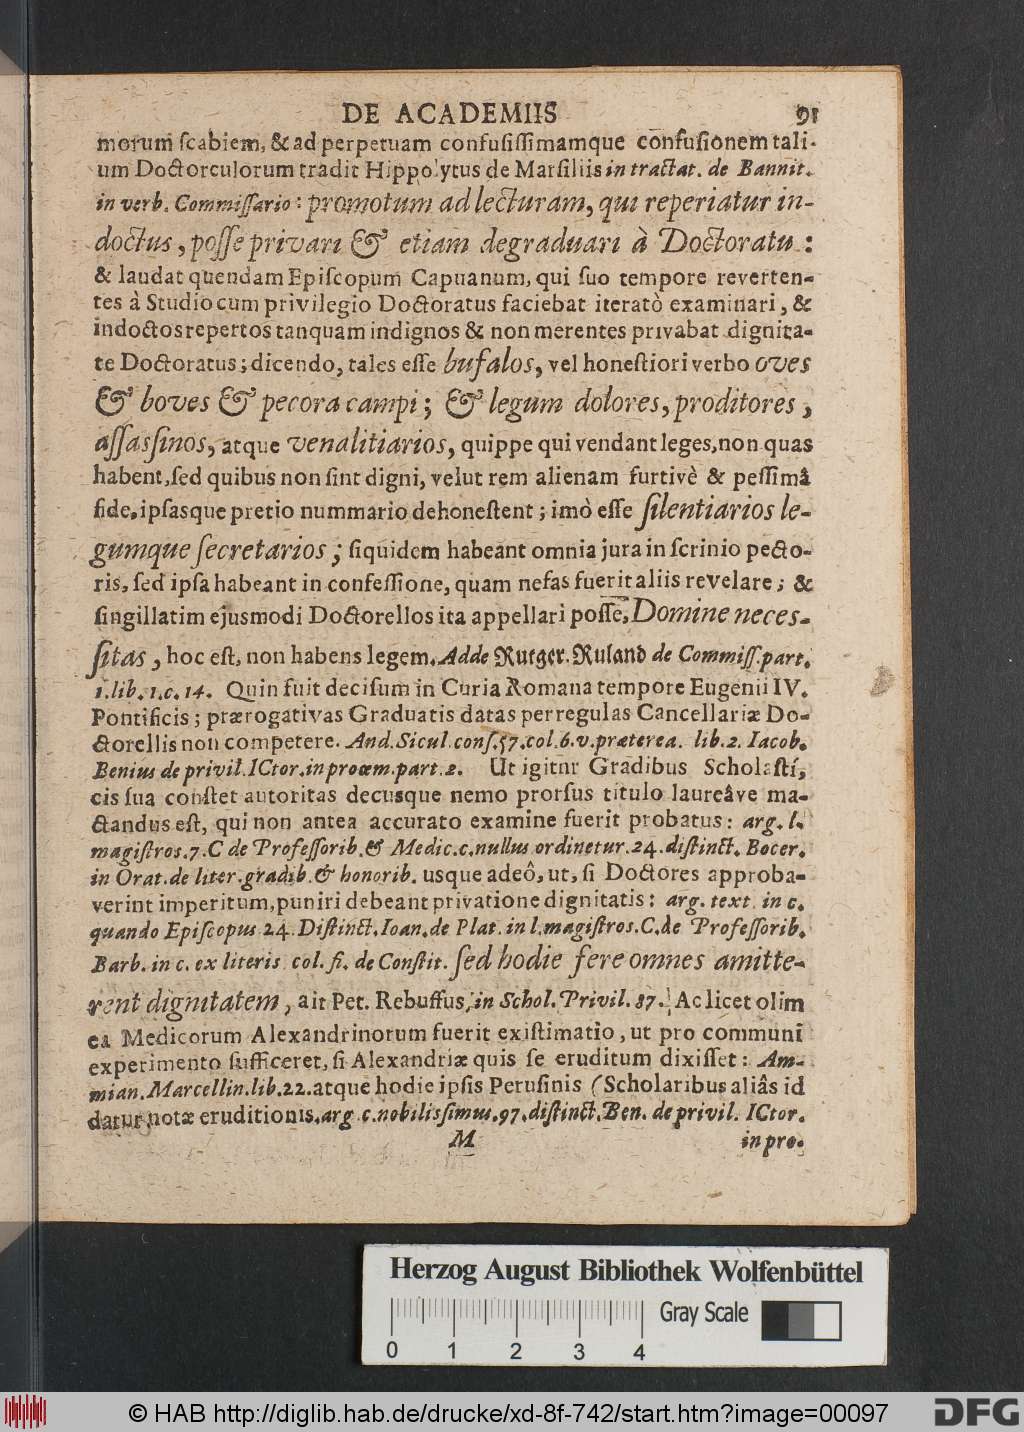 DE ACADEMIIS 91
morum ſcabiem, & ad perpetuam confuſiſſimamque confuſionem tali-
um Doctorculorum tradit Hippolytus de Marſiliis in tractat. de Bannit.
in verb. Commiſſario: promotum ad lecturam, qui reperiatur in-
doctus, poſſe privari & etiam degraduari à Doctoratu:
& laudat quendam Epiſcopum Capuanum, qui ſuo tempore reverten-
tes à Studio cum privilegio Doctoratus faciebat iteratò examinari, &
indoctos repertos tanquam indignos & non merentes privabat dignita-
te Doctoratus; dicendo, tales eſſe bufalos, vel honeſtiori verbo oves
& boves & pecora campi; & legum dolores, proditores,
aſſasſinos, atque venalitiarios, quippe qui vendant leges, non quas
habent, ſed quibus non ſint digni, velut rem alienam furtivè & peſſimâ
fide, ipſasque pretio nummario dehoneſtent; imò eſſe ſilentiarios le-
gumque ſecretarios; ſiquidem habeant omnia jura in ſcrinio pecto-
ris, ſed ipſa habeant in confeſſione, quam nefas fuerit aliis revelare; &
ſingillatim ejusmodi Doctorellos ita appellari poſſe, Domine neces-
ſitas, hoc eſt, non habens legem. Adde Rutger. Ruland de Commiſſ. part.
1. lib. 1. c. 14. Quin fuit deciſum in Curia Romana tempore Eugenii IV.
Pontificis; prærogativas Graduatis datas per regulas Cancellariæ Do-
ctorellis non competere. And. Sicul. conſ. 57. col. 6. v. præterea. lib. 2. Iacob.
Benius de privil. ICtor. in proœm. part. 2. Ut igitur Gradibus Scholaſti,
cis ſua conſtet autoritas decusque nemo prorſus titulo laureâve ma-
ctandus eſt, qui non antea accurato examine fuerit probatus: arg. l.
magiſtros. 7. C de Profeſſorib. & Medic. c. nullus ordinetur. 24. diſtinct. Bocer.
in Orat. de liter. gradib. & honorib. usque adeô, ut, ſi Doctores approba-
verint imperitum, puniri debeant privatione dignitatis: arg. text. in c.
quando Epiſcopus 24. Diſtinct. Ioan. de Plat. in l. magiſtros. C. de Profeſſorib.
Barb. in c. ex literis col. fi. de Conſtit. ſed hodie fere omnes amitte-
rent dignitatem, ait Pet. Rebuffus, in Schol. Privil. 87. Ac licet olim
ea Medicorum Alexandrinorum fuerit exiſtimatio, ut pro communi
experimento ſufficeret, ſi Alexandriæ quis ſe eruditum dixiſſet: Am-
mian. Marcellin. lib. 22. atque hodie ipſis Peruſinis (Scholaribus aliâs id
datur notæ eruditionis. arg. c. nobilisſimus. 97. diſtinct. Ben. de privil. ICtor.
M in pro.
Herzog August Bibliothek Wolfenbüttel
Gray Scale
0 1 2 3 4
© HAB http://diglib.hab.de/drucke/xd-8f-742/start.htm?image=00097 DFG